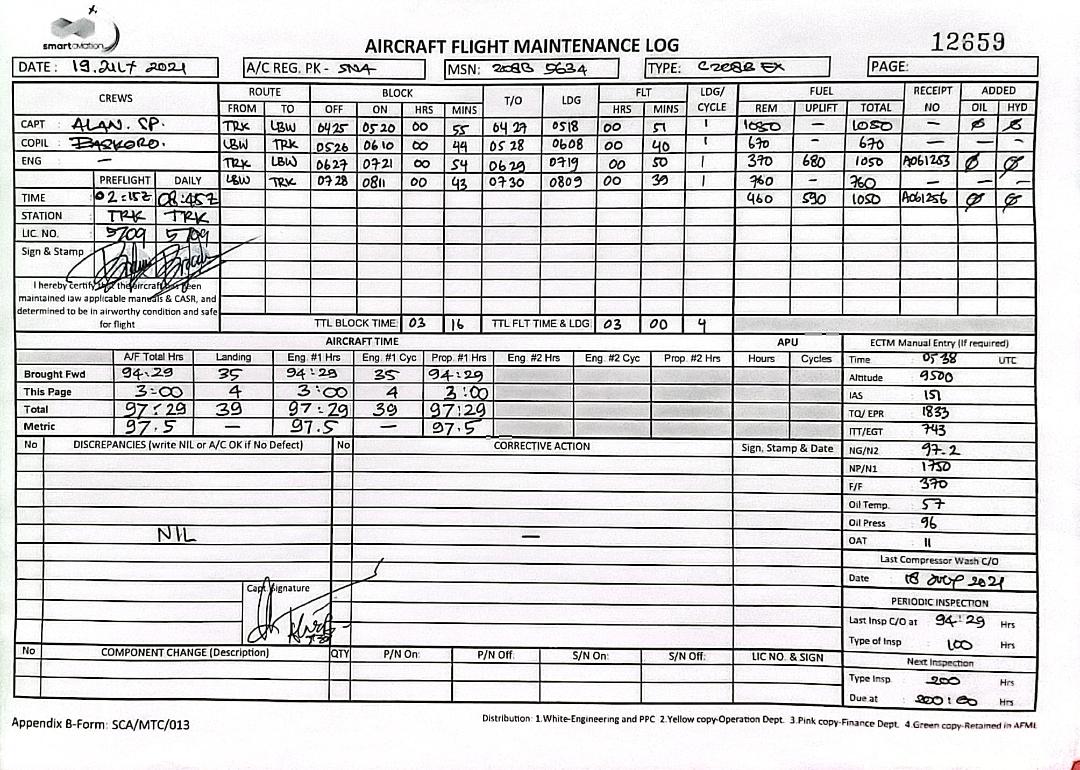 smart aviation
AIRCRAFT FLIGHT MAINTENANCE LOG
12659
DATE : 19.JULY 2021 A/C REG. PK - SNA MSN: 208B 5634 TYPE: C208B EX PAGE:
CREWS ROUTE BLOCK T/O LDG FLT LDG/ CYCLE FUEL RECEIPT NO ADDED
FROM TO OFF ON HRS MINS HRS MINS REM UPLIFT TOTAL OIL HYD
CAPT ALAN. SP. TRK LBW 0425 0520 00 55 0427 0518 00 51 1 1050 — 1050 — Ø Ø
COPIL BASKORO. LBW TRK 0526 0610 00 44 0528 0608 00 40 1 670 — 670 — - -
ENG — TRK LBW 0627 0721 00 54 0629 0719 00 50 1 370 680 1050 A061253 Ø Ø
PREFLIGHT DAILY LBW TRK 0728 0811 00 43 0730 0809 00 39 1 760 - 760 — - -
TIME 02:15Z 08:45Z 460 590 1050 A061256 Ø Ø
STATION TRK TRK
LIC. NO. 5709 5709
Sign & Stamp
I hereby certify that the aircraft has been
maintained iaw applicable manuals & CASR, and
determined to be in airworthy condition and safe
for flight
TTL BLOCK TIME 03 16 TTL FLT TIME & LDG 03 00 4
AIRCRAFT TIME APU ECTM Manual Entry (If required)
A/F Total Hrs Landing Eng. #1 Hrs Eng. #1 Cyc Prop. #1 Hrs Eng. #2 Hrs Eng. #2 Cyc Prop. #2 Hrs Hours Cycles Time : 0538 UTC
Brought Fwd 94:29 35 94:29 35 94:29 Altitude : 9500
This Page 3:00 4 3:00 4 3:00 IAS : 151
Total 97:29 39 97:29 39 97:29 TQ/ EPR : 1833
Metric 97.5 — 97.5 — 97.5 ITT/EGT : 743
No DISCREPANCIES (write NIL or A/C OK if No Defect) No CORRECTIVE ACTION Sign, Stamp & Date NG/N2 : 97.2
NP/N1 : 1750
F/F : 370
Oil Temp. : 57
NIL — Oil Press : 96
OAT : 11
Last Compressor Wash C/O
Capt. Signature Date : 18 JULY 2021
PERIODIC INSPECTION
Last Insp C/O at : 94:29 Hrs
Type of Insp : 100 Hrs
No COMPONENT CHANGE (Description) QTY P/N On: P/N Off: S/N On: S/N Off: LIC NO. & SIGN Next Inspection
Type Insp. : 200 Hrs
Due at : 200:00 Hrs
Appendix B-Form: SCA/MTC/013 Distribution: 1.White-Engineering and PPC 2.Yellow copy-Operation Dept. 3.Pink copy-Finance Dept. 4.Green copy-Retained in AFML